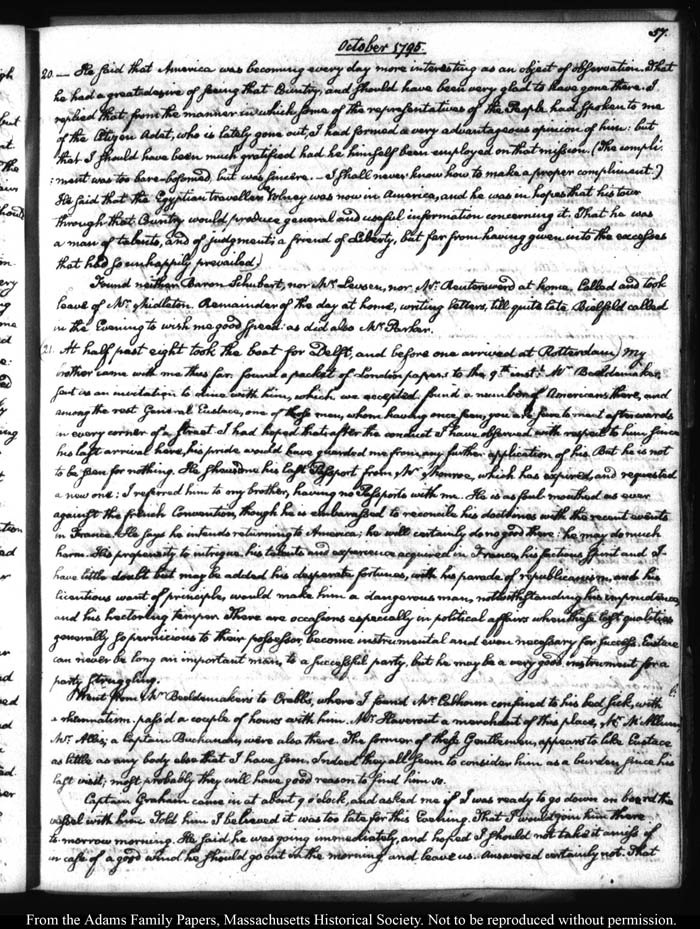 57.
October 1795.
20. — He said that America was becoming every day more interesting as an object of observation. That
he had a great desire of seeing that Country, and should have been very glad to have gone there. I
replied that from the manner in which some of the representatives of the People had spoken to me
of the Citizen Adet, who is lately gone out, I had formed a very advantageous opinion of him: but
that I should have been much gratified had he himself been employed on that mission. (The compli-
:ment was too bare-bosomed, but was sincere. — I shall never know how to make a proper compliment.)
He said that the Egyptian traveller Volney was now in America, and he was in hopes that his tour
through that Country would produce general and useful information concerning it. That he was
a man of talents, and of judgment; a friend of Liberty, but far from having given into the excesses
that had so unhappily prevailed.
Found neither Baron Schubart, nor Mr. Levsen, nor Mr. Reutersward at home. Called and took
leave of Mr. Midleton. Remainder of the day at home, writing letters, till quite late. Bielfeld called
in the Evening to wish me good speed: as did also Mr. Parker.
21. At half past eight took the boat for Delft, and before one arrived at Rotterdam) My
brother came with me thus far. found a packet of London papers to the 9th. inst. Mr. Beeldemaker
sent us an invitation to dine with him, which we accepted. found a number of Americans there, and
among the rest General Eustace, one of those men, whom having once seen, you are sure to meet afterwards
in every corner of a Street. I had hoped that after the conduct I have observed with respect to him since
his last arrival here, his pride would have guarded me from any further application of his. But he is not
to be seen for nothing. He shewed me his last Passport from Mr. Monroe, which has expired, and requested
a new one: I referred him to my brother, having no Passports with me. He is as foul mouthed as ever
against the french Convention, though he is embarassed to reconcile his doctrines with the recent events
in France. He says he intends returning to America; he will certainly do no good there: he may do much
harm. His propensity to intrigue, his talents and experience acquired in France, his factious spirit and I
have little doubt but may be added his desperate fortunes, with his parade of republicanism, and his
licentious want of principle, would make him a dangerous man, notwithstanding his imprudence,
and his hectoring temper. There are occasions especially in political affairs when these last qualities
generally so pernicious to their possessor become instrumental and even necessary for success. Eustace
can never be long an important man, to a successful party, but he may be a very good instrument for a
party struggling.
Went from Mr. Beeldemakers to Crabb's, where I found Mr. Calhoun confined to his bed sick, with
a rheumatism. pass'd a couple of hours with him. Mr. a merchant of this place, Mr.
Mr. Allis, a Captain Buchanan, were also there. The former of these Gentlemen, appears to like Eustace
as little as any body else that I have seen. Indeed they all seem to consider him as a burden since his
last visit; most probably they will have good reason to find him so.
Captain Graham came in at about 9 o'clock, and asked me if I was ready to go down on board the
vessel with him. Told him I believed it was too late for this Evening. That I would join him there
to-morrow morning. He said he was going immediately, and hoped I should not take it amiss if
in case of a good wind he should go out in the morning and leave us. Answered certainly not. That
From the Adams Family Papers, Massachusetts Historical Society. Not to be reproduced without permission.